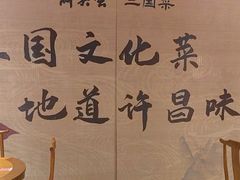 三国菜
国文化菜
地道许昌味